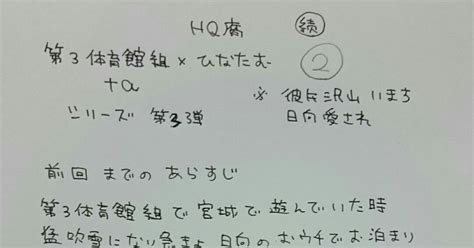 HQ腐 続
第3体育館組×ひなたむ ②
+α ※彼氏沢山いまち
シリーズ 第3弾 日向愛され
前回までのあらすじ
第3体育館組で宮城で遊んでいた時
猛吹雪になり急きょ日向のおウチでお泊まり